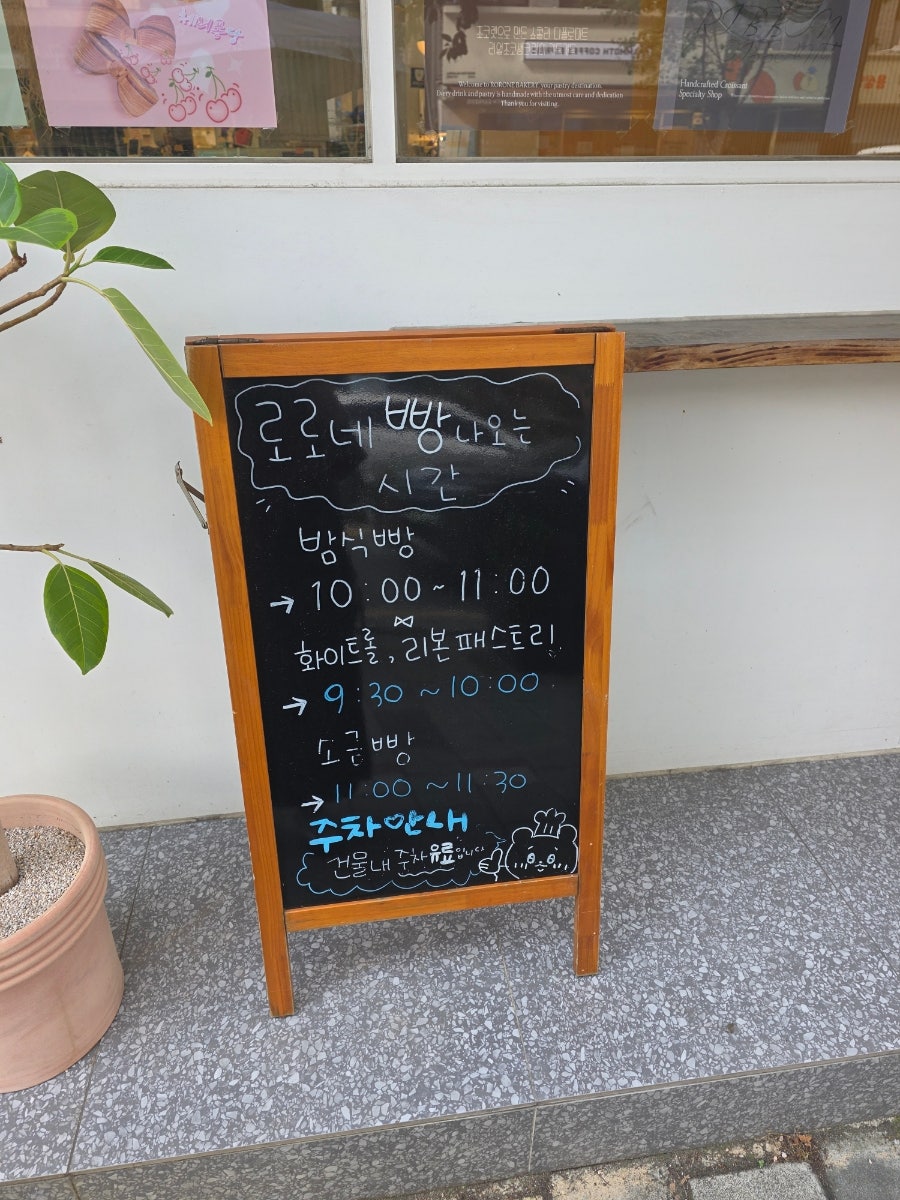 Welcome to RORONE BAKERY, your pastry destination.
Every drink and pastry is handmade with the utmost care and dedication
Thank you for visiting.
Handcrafted Croissant
Specialty Shop
로로네 빵 나오는
시간
밤식빵
→ 10:00 ~ 11:00
화이트롤, 리본 패스트리
→ 9:30 ~ 10:00
소금빵
→ 11:00 ~ 11:30
주차안내
건물내 주차 유료입니다